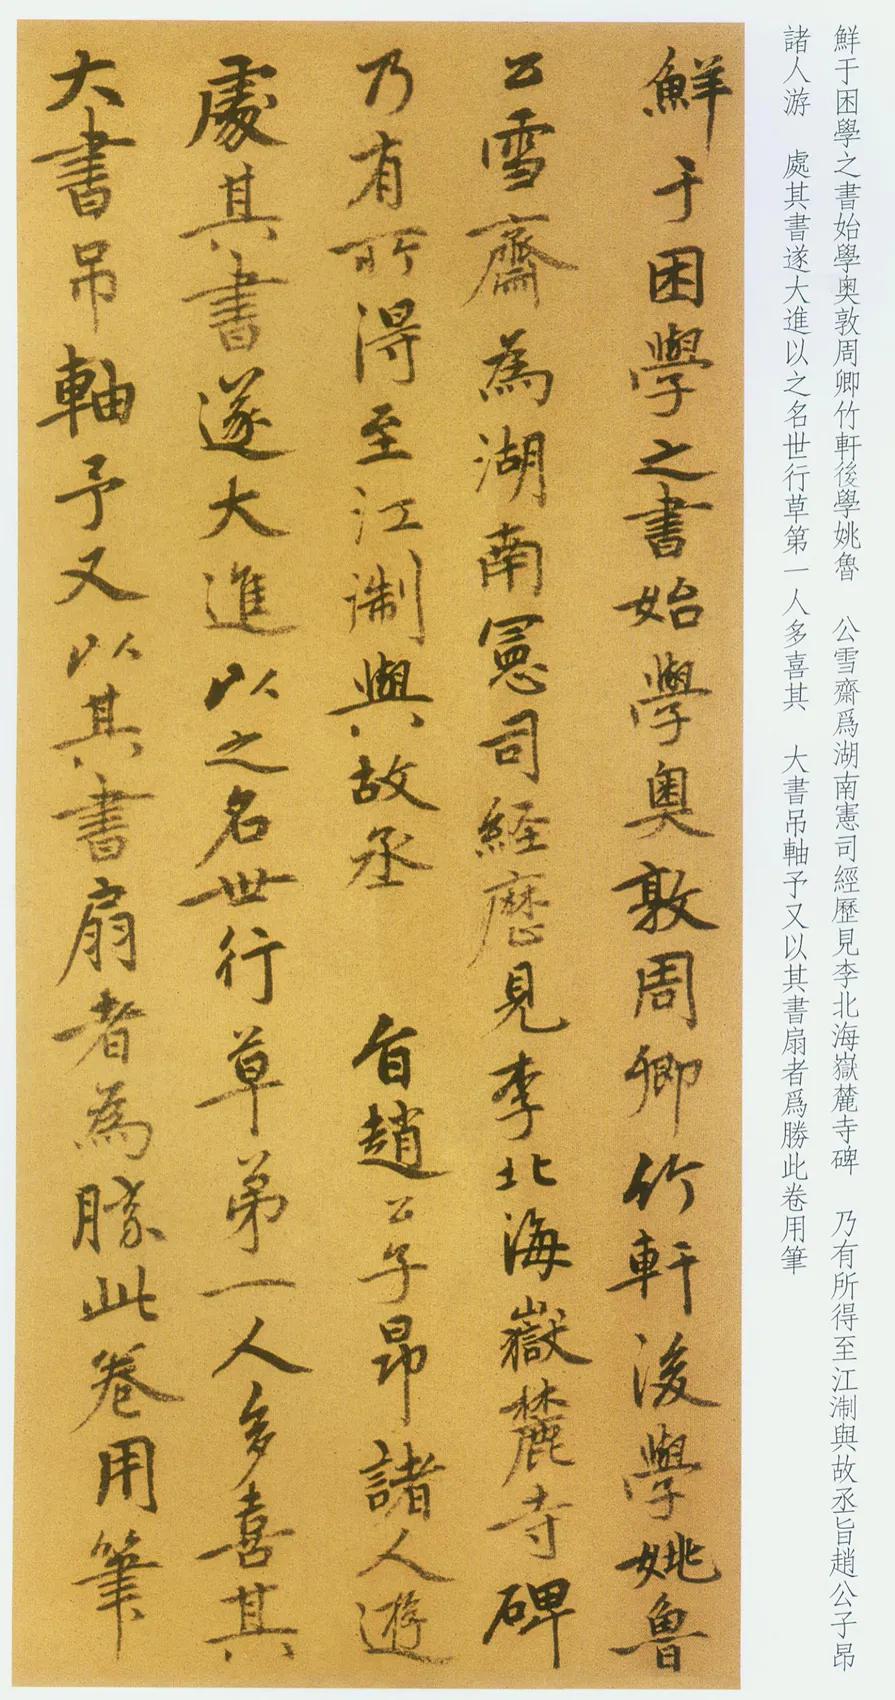 鮮于困學之書始學奧敦周卿竹軒後學姚魯　公雪齋爲湖南憲司經歷見李北海嶽麓寺碑　乃有所得至江淛與故丞旨趙公子昂
諸人游　處其書遂大進以之名世行草第一人多喜其　大書吊軸予又以其書扇者爲勝此卷用筆
鮮于困學之書始學奧敦周卿竹軒後學姚魯
公雪齋為湖南憲司経歷見李北海嶽麓寺碑
乃有所得至江淛與故丞　旨趙公子昂諸人遊
處其書遂大進以之名世行草第一人多喜其
大書吊軸予又以其書扇者為勝此卷用筆